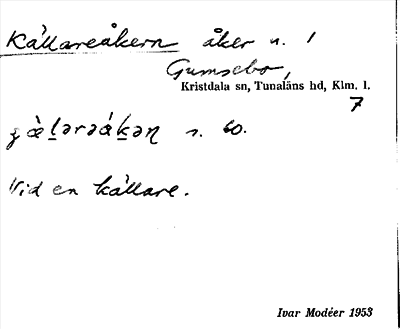 Källareåkern åker n. 1
Gumsebo,
Kristdala sn, Tunaläns hd, Klm. l.
7
s. 60.
Vid en källare.
Ivar Modéer 1953